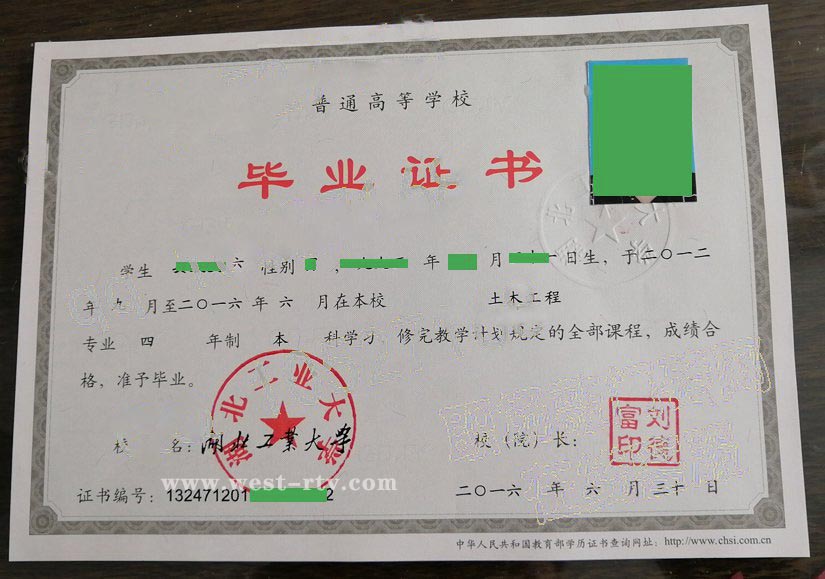 普通高等学校
毕业证书
学生 六 性别 , 年 月 一日生，于二〇一二
年 九 月至二〇一六 年 六 月在本校 土木工程
专业 四 年制 本 科学习，修完教学计划规定的全部课程，成绩合
格，准予毕业。
湖北工业大学
刘德富印
校 名：湖北工业大学 校（院）长：
www.west-rty.com
证书编号：132471201 2 二〇一六 年 六 月 三十 日
中华人民共和国教育部学历证书查询网址：http://www.chsi.com.cn